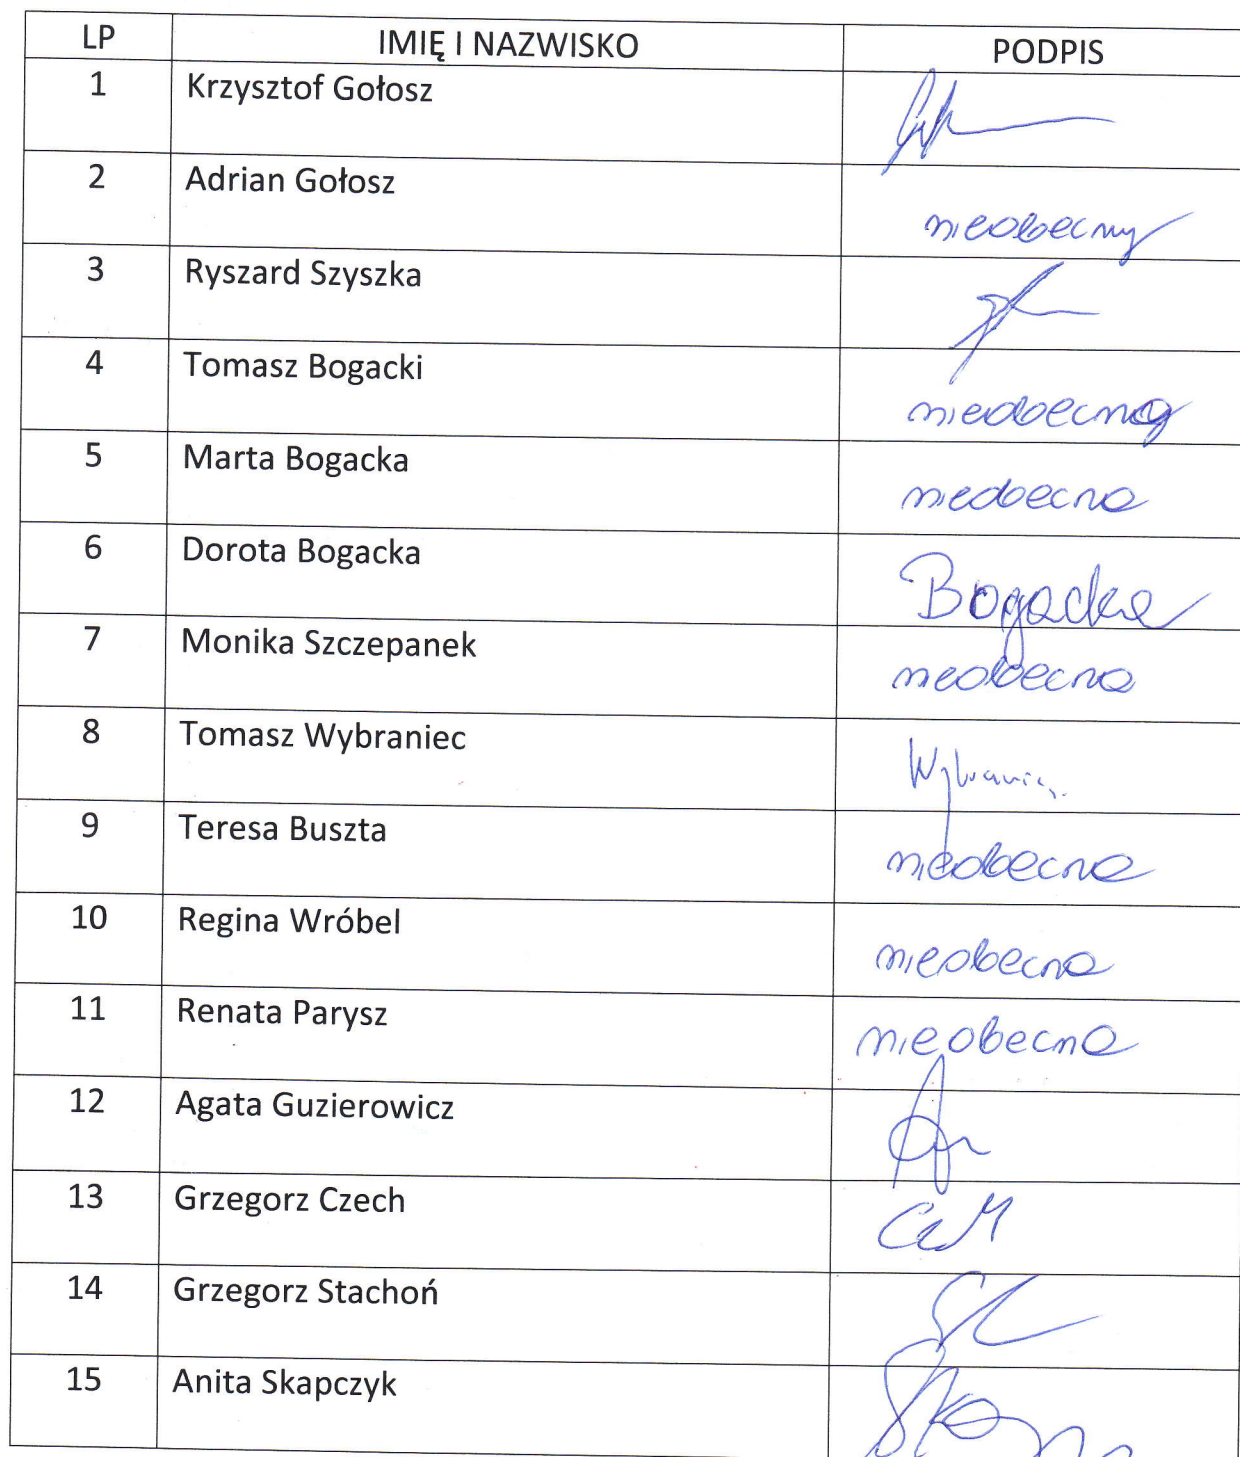 LP IMIĘ I NAZWISKO PODPIS
1 Krzysztof Gołosz
2 Adrian Gołosz nieobecny
3 Ryszard Szyszka
4 Tomasz Bogacki nieobecny
5 Marta Bogacka nieobecna
6 Dorota Bogacka Bogacka
7 Monika Szczepanek nieobecna
8 Tomasz Wybraniec
9 Teresa Buszta nieobecna
10 Regina Wróbel nieobecna
11 Renata Parysz nieobecna
12 Agata Guzierowicz
13 Grzegorz Czech
14 Grzegorz Stachoń
15 Anita Skapczyk